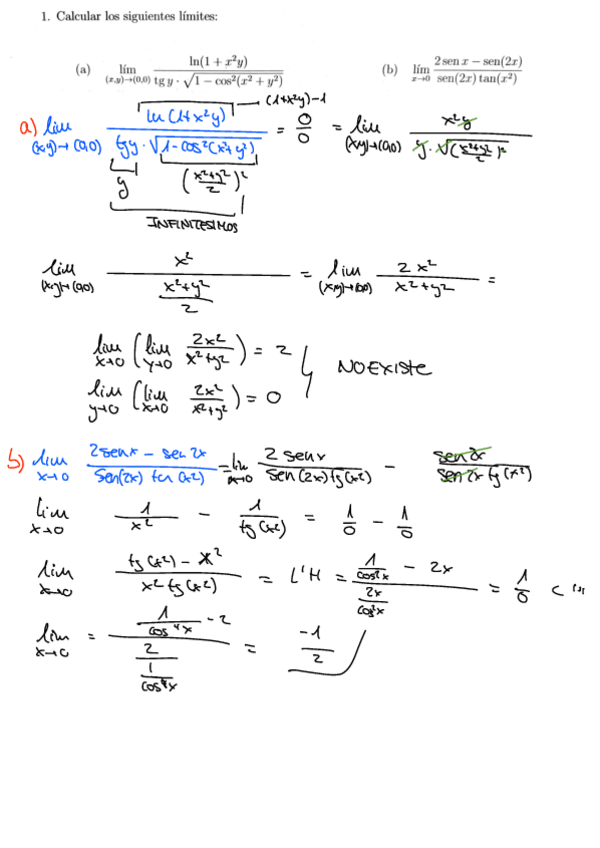 1. Calcular los siguientes límites:
(a) lím (x,y)→(0,0) ln(1 + x²y) / (tg y · √(1 − cos²(x² + y²)))
(b) lím x→0 (2 sen x − sen(2x)) / (sen(2x) tan(x²))
(1+x²y)-1
a) lim (x,y)→(0,0) ln(1+x²y) / (tg y · √(1-cos²(x²+y²))) = 0/0 = lim (x,y)→(0,0) x²y / (y · √((x²+y²)/2)²)
y ((x²+y²)/2)²
INFINITESIMOS
lim (x,y)→(0,0) x² / ((x²+y²)/2) = lim (x,y)→(0,0) 2x² / (x²+y²) =
lim x→0 (lim y→0 2x²/(x²+y²)) = 2
NO EXISTE
lim y→0 (lim x→0 2x²/(x²+y²)) = 0
b) lim x→0 (2senx - sen 2x) / (sen(2x) tan(x²)) = lim x→0 2 senx / (sen(2x) tg(x²)) - sen 2x / (sen 2x tg(x²))
lim x→0 1/x² - 1/tg(x²) = 1/0 - 1/0
lim x→0 (tg(x²) - x²) / (x² tg(x²)) = L'H = (1/cos²x - 2x) / (2x/cos²x) = 1/0
lim x→0 = (1/cos⁴x - 2) / (2 / (1/cos⁴x)) = -1/2